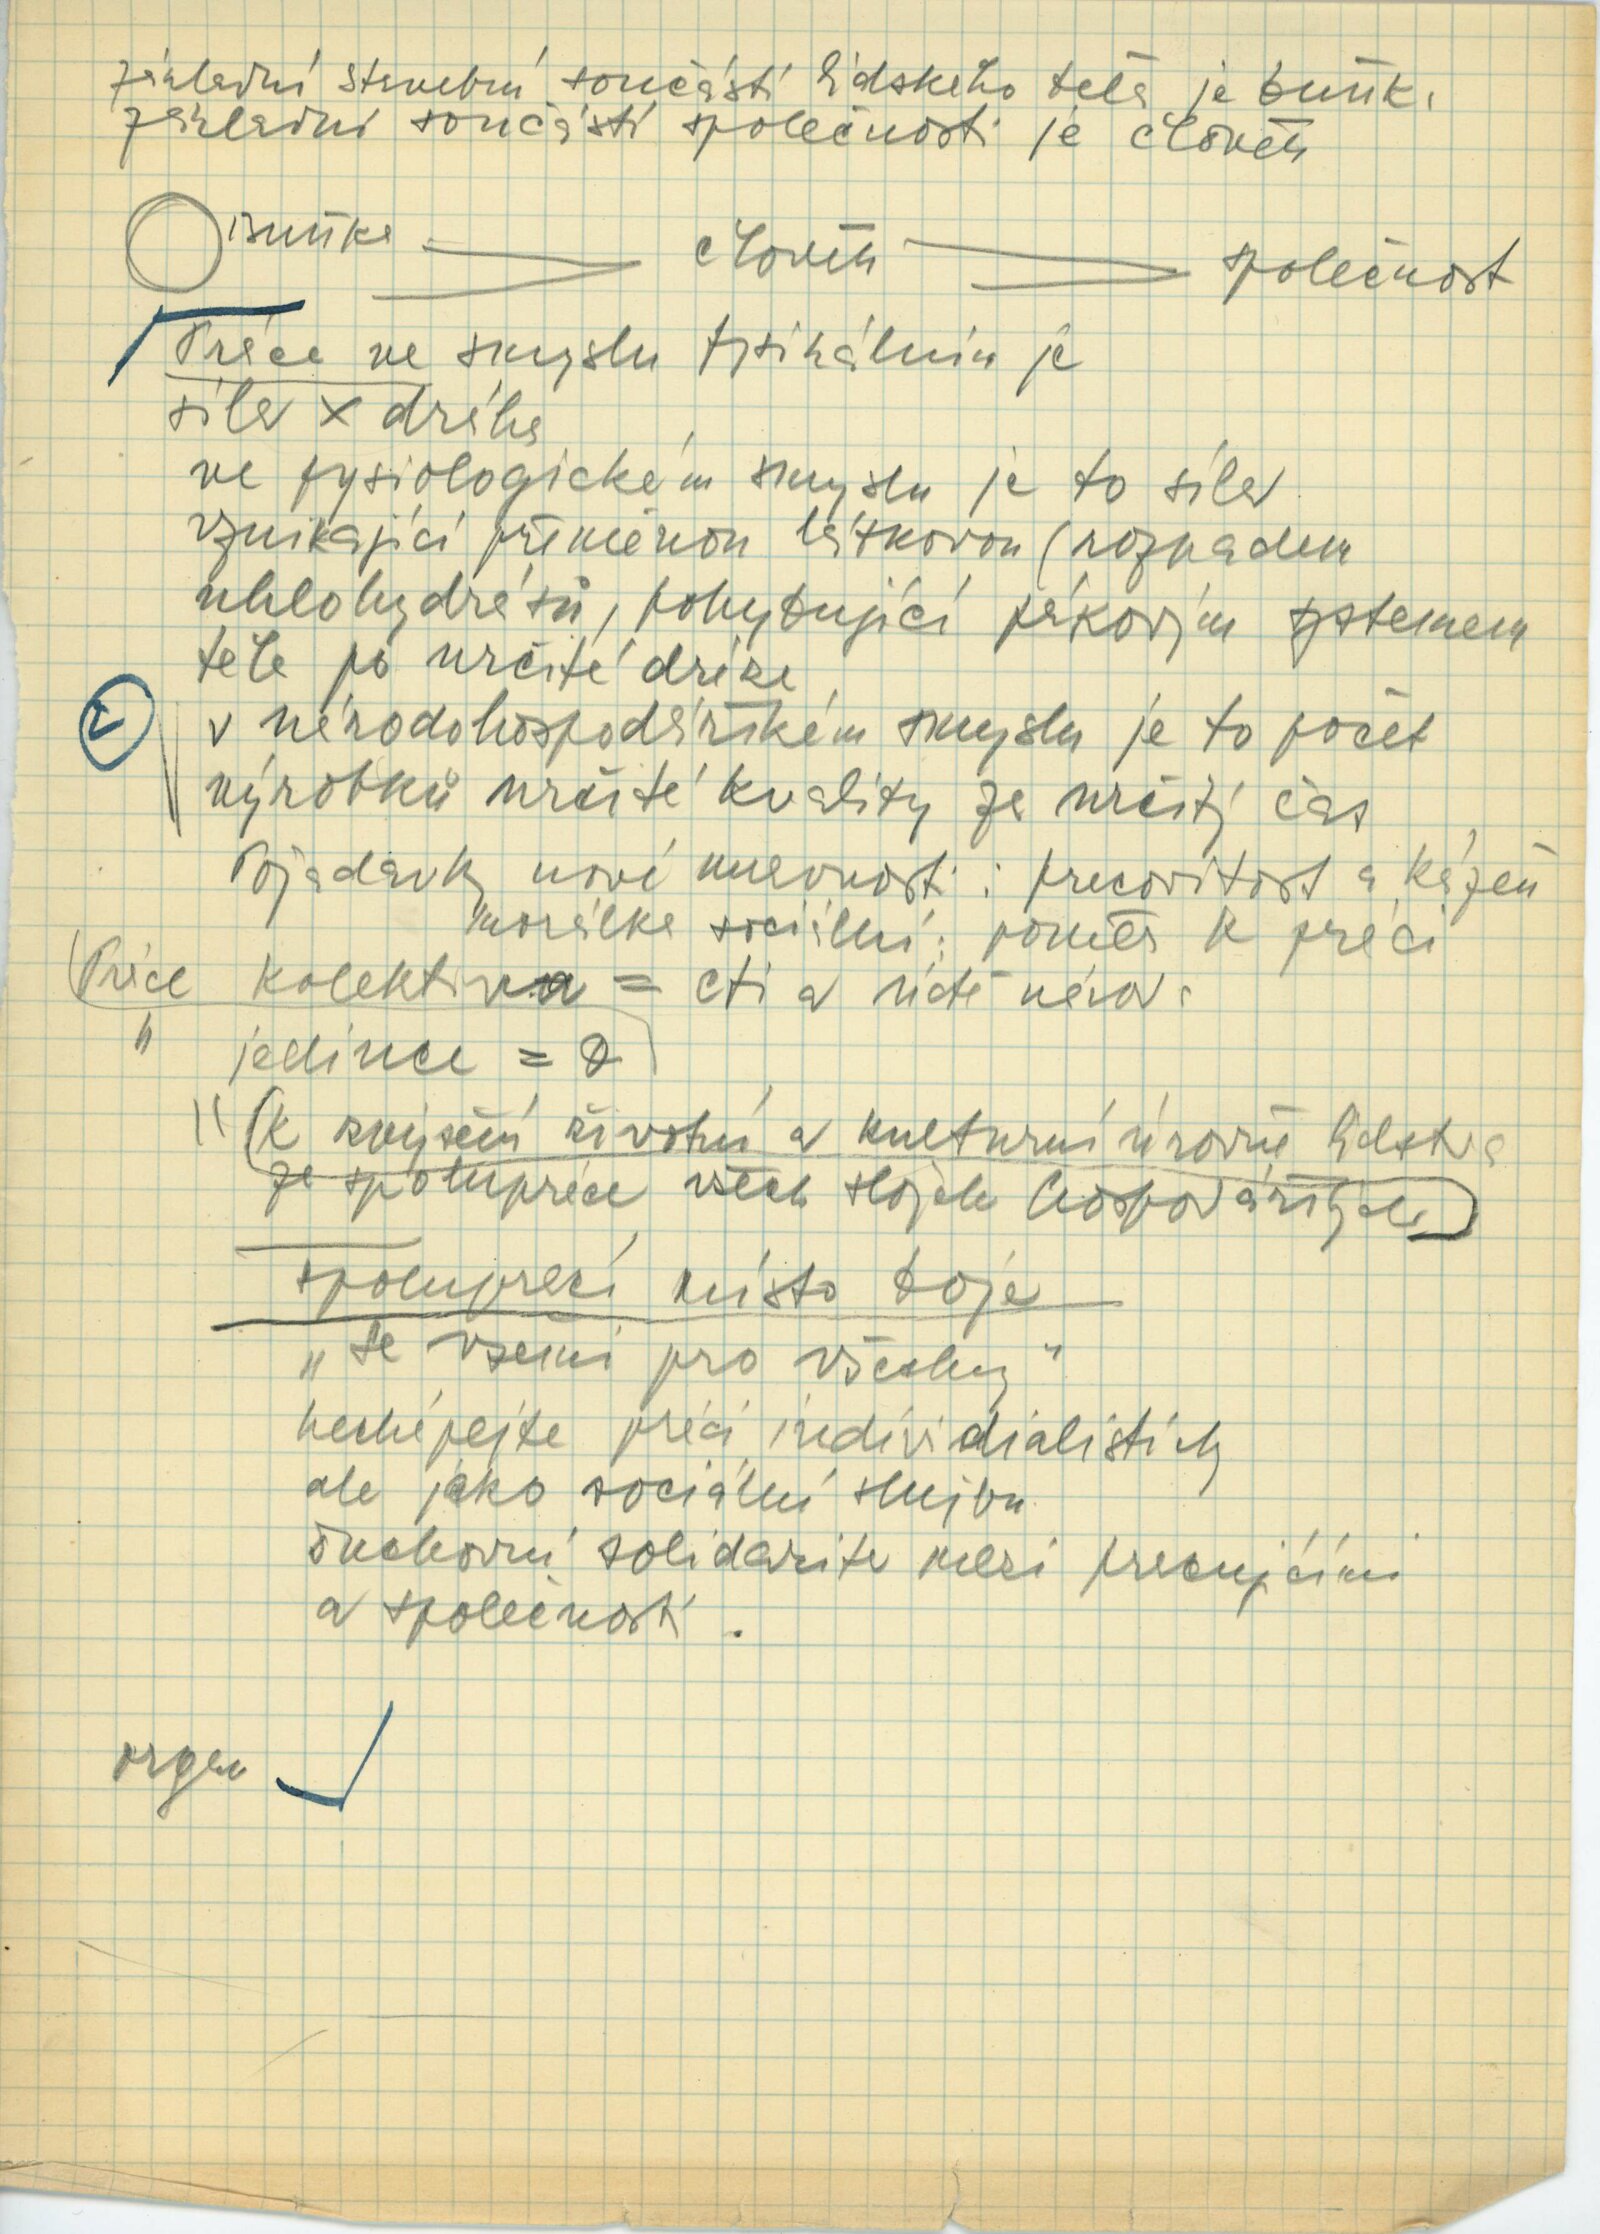 základní stavební součástí lidského těla je buňka
základní součástí společnosti je člověk
Buňka člověk společnost
Práce ve smyslu fysikálním je
síla x dráha
ve fysiologickém smyslu je to síla
vznikající přeměnou látkovou (rozpadem
uhlohydrásů, pohybující pákovým systemem
těla po určité dráze
v národohospodářském smyslu je to počet
výrobků určité kvality za určitý čas
Požadavky nové mravnosti: pracovitost a kázeň
morálka sociální: poměr k práci
Práce kolektivu = cti a úctě národa
" jedince =
(k zvýšení životní a kulturní úrovně lidstva
za spolupráce všech složek hospodářských)
spoluprací místo boje
„se všemi pro všechny"
nechápejte práci individialisticky
ale jako sociální službu
duchovní solidarita mezi pracujícími
a společností.
organ